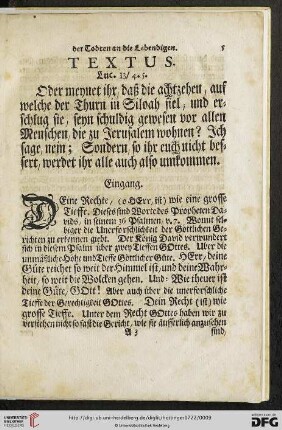 der Todten an die Lebendigen. 5
TEXTUS.
Luc. 13/ 4. 5.
Oder meynet ihr, daß die achtzehen, auf
welche der Thurn in Siloah fiel, und er-
schlug sie, seyn schuldig gewesen vor allen
Menschen, die zu Jerusalem wohnen? Ich
sage, nein; Sondern, so ihr euch nicht bes-
sert, werdet ihr alle auch also umkommen.
Eingang.
DEine Rechte, (o HErr, ist) wie eine grosse
Tieffe. Dieses sind Worte des Propheten Da-
vids, in seinem 36 Psalmen. v. 7. Womit sel-
biger die Unerforschlichkeit der Göttlichen Ge-
richten zu erkennen giebt. Der König David verwundert
sich in diesem Psalm über zwey Tieffen GOttes. Uber die
unmäßliche Höhe und Tieffe Göttlicher Güte, HErr, deine
Güte reichet so weit der Himmel ist, und deine Wahr-
heit, so weit die Wolcken gehen. Und: Wie theuer ist
deine Güte, GOtt! Aber auch über die unerforschliche
Tieffe der Gerechtigkeit GOttes. Dein Recht (ist) wie
grosse Tieffe. Unter dem Recht GOttes haben wir zu
verstehen nicht so fast die Gericht, wie sie äusserlich anzusehen
A 3 sind,
UNIVERSITÄTS-
BIBLIOTHEK
HEIDELBERG
http://digi.ub.uni-heidelberg.de/diglit/hottinger1772/0009
© Universitätsbibliothek Heidelberg
gefördert durch die
DFG